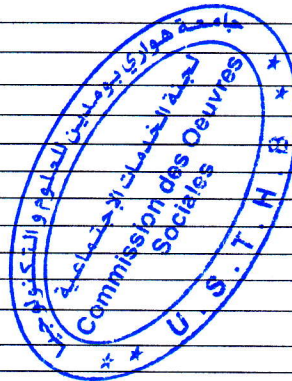 جامعة هواري بومدين للعلوم و التكنولوجيا
لجنة الخدمات الإجتماعية
Commission des Oeuvres
Sociales
U.S.T.H.B